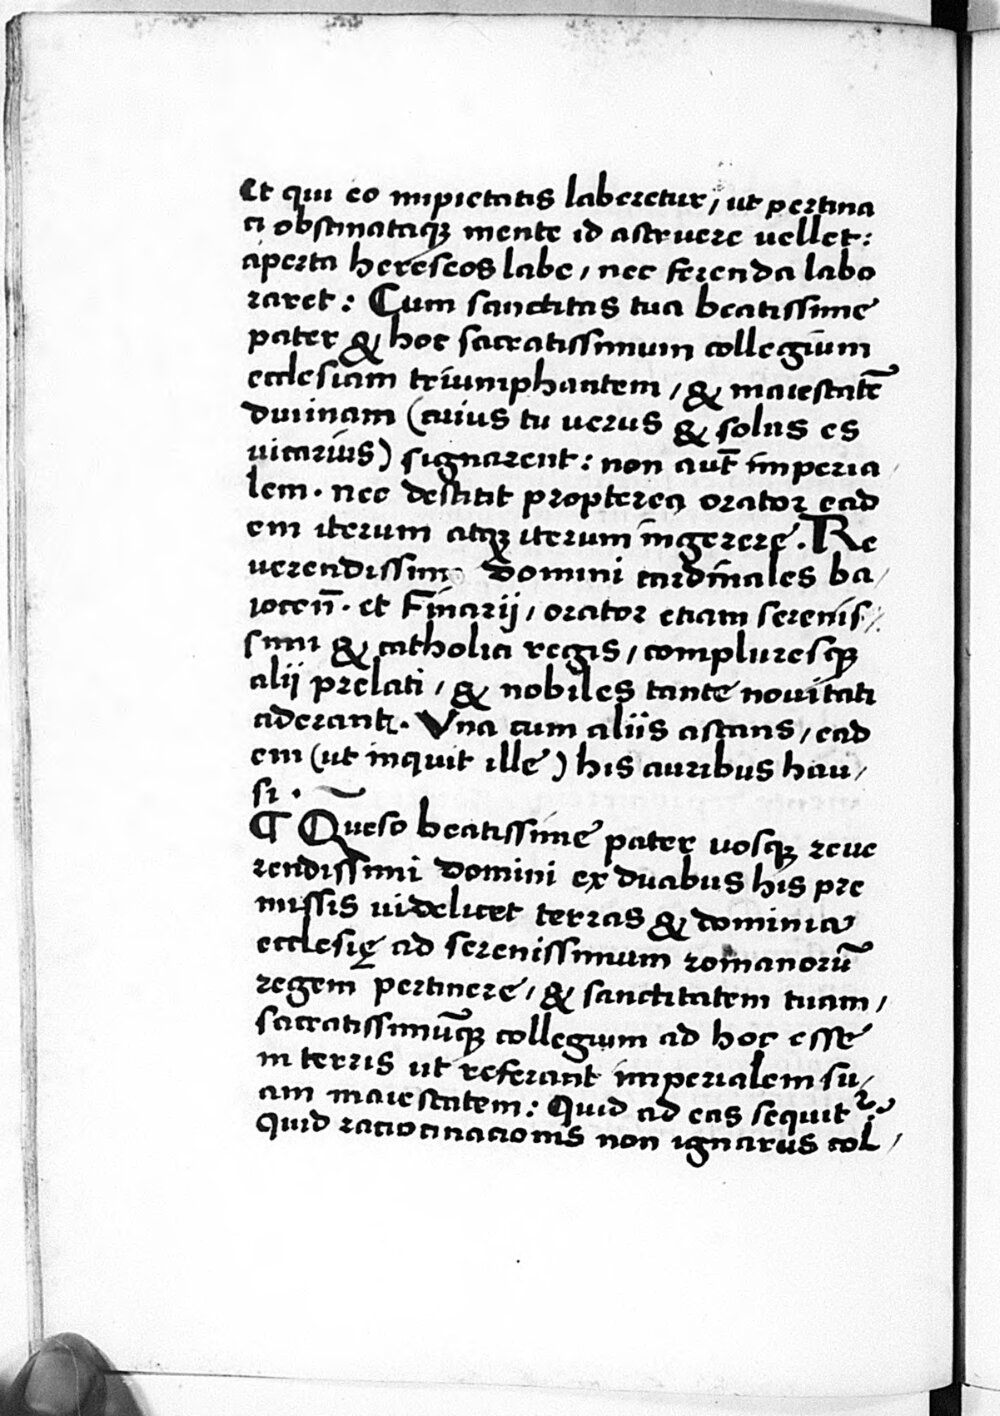 Et qui eo impietatis laberetur, ut pertina
ci obstinataqꝫ mente id astruere uellet:
aperta hereseos labe, nec ferenda labo
raret: Cum sanctitas tua beatissime
pater & hoc sacratissimum collegium
ecclesiam triumphantem, & maiestatē
diuinam (cuius tu uerus & solus es
uicarius) signarent: non aut̄ imperia
lem. nec destitit propterea orator ead
em iterum atqꝫ iterum ingerere. Re
uerendissimi domini cardinales ba/
iocen̄. et Finarij, orator etiam serenis/
simi & catholici regis, compluresqꝫ
alij prelati, & nobiles tante nouitati
aderant. Vna cum aliis astans, ead
em (ut inquit ille) his auribus hau/
si.
¶ Queso beatissime pater uosqꝫ reue
rendissimi domini ex duabus his pre
missis uidelicet terras & dominia
ecclesię ad serenissimum romanorū
regem pertinere, & sanctitatem tuam,
sacratissimūqꝫ collegium ad hoc esse
in terris ut referant imperialem su/
am maiestatem: Quid ad eas sequit̄?
Quid ratiocinationis non ignarus col/